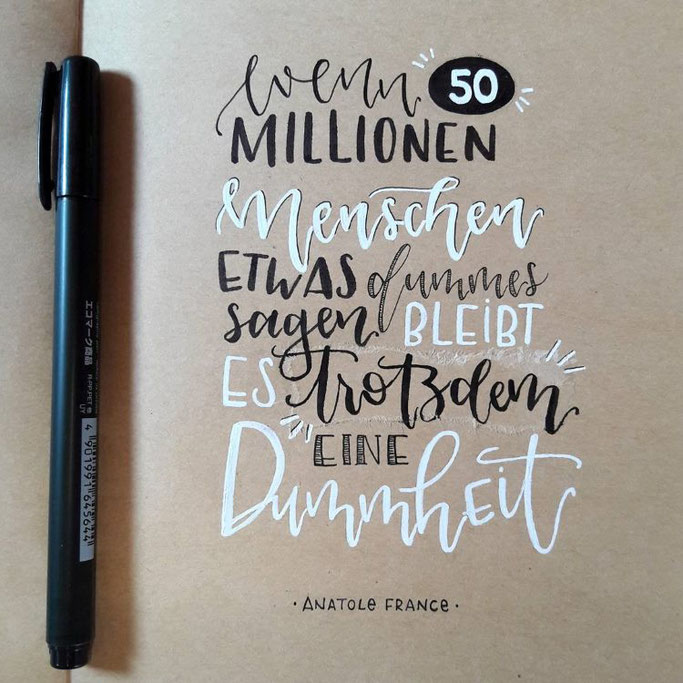 wenn 50
MILLIONEN
Menschen
ETWAS dummes
sagen BLEiBT
ES trotzdem
EINE
DummhEit
· ANATOLE FRANCE ·
エコマーク商品
4 901991 645644